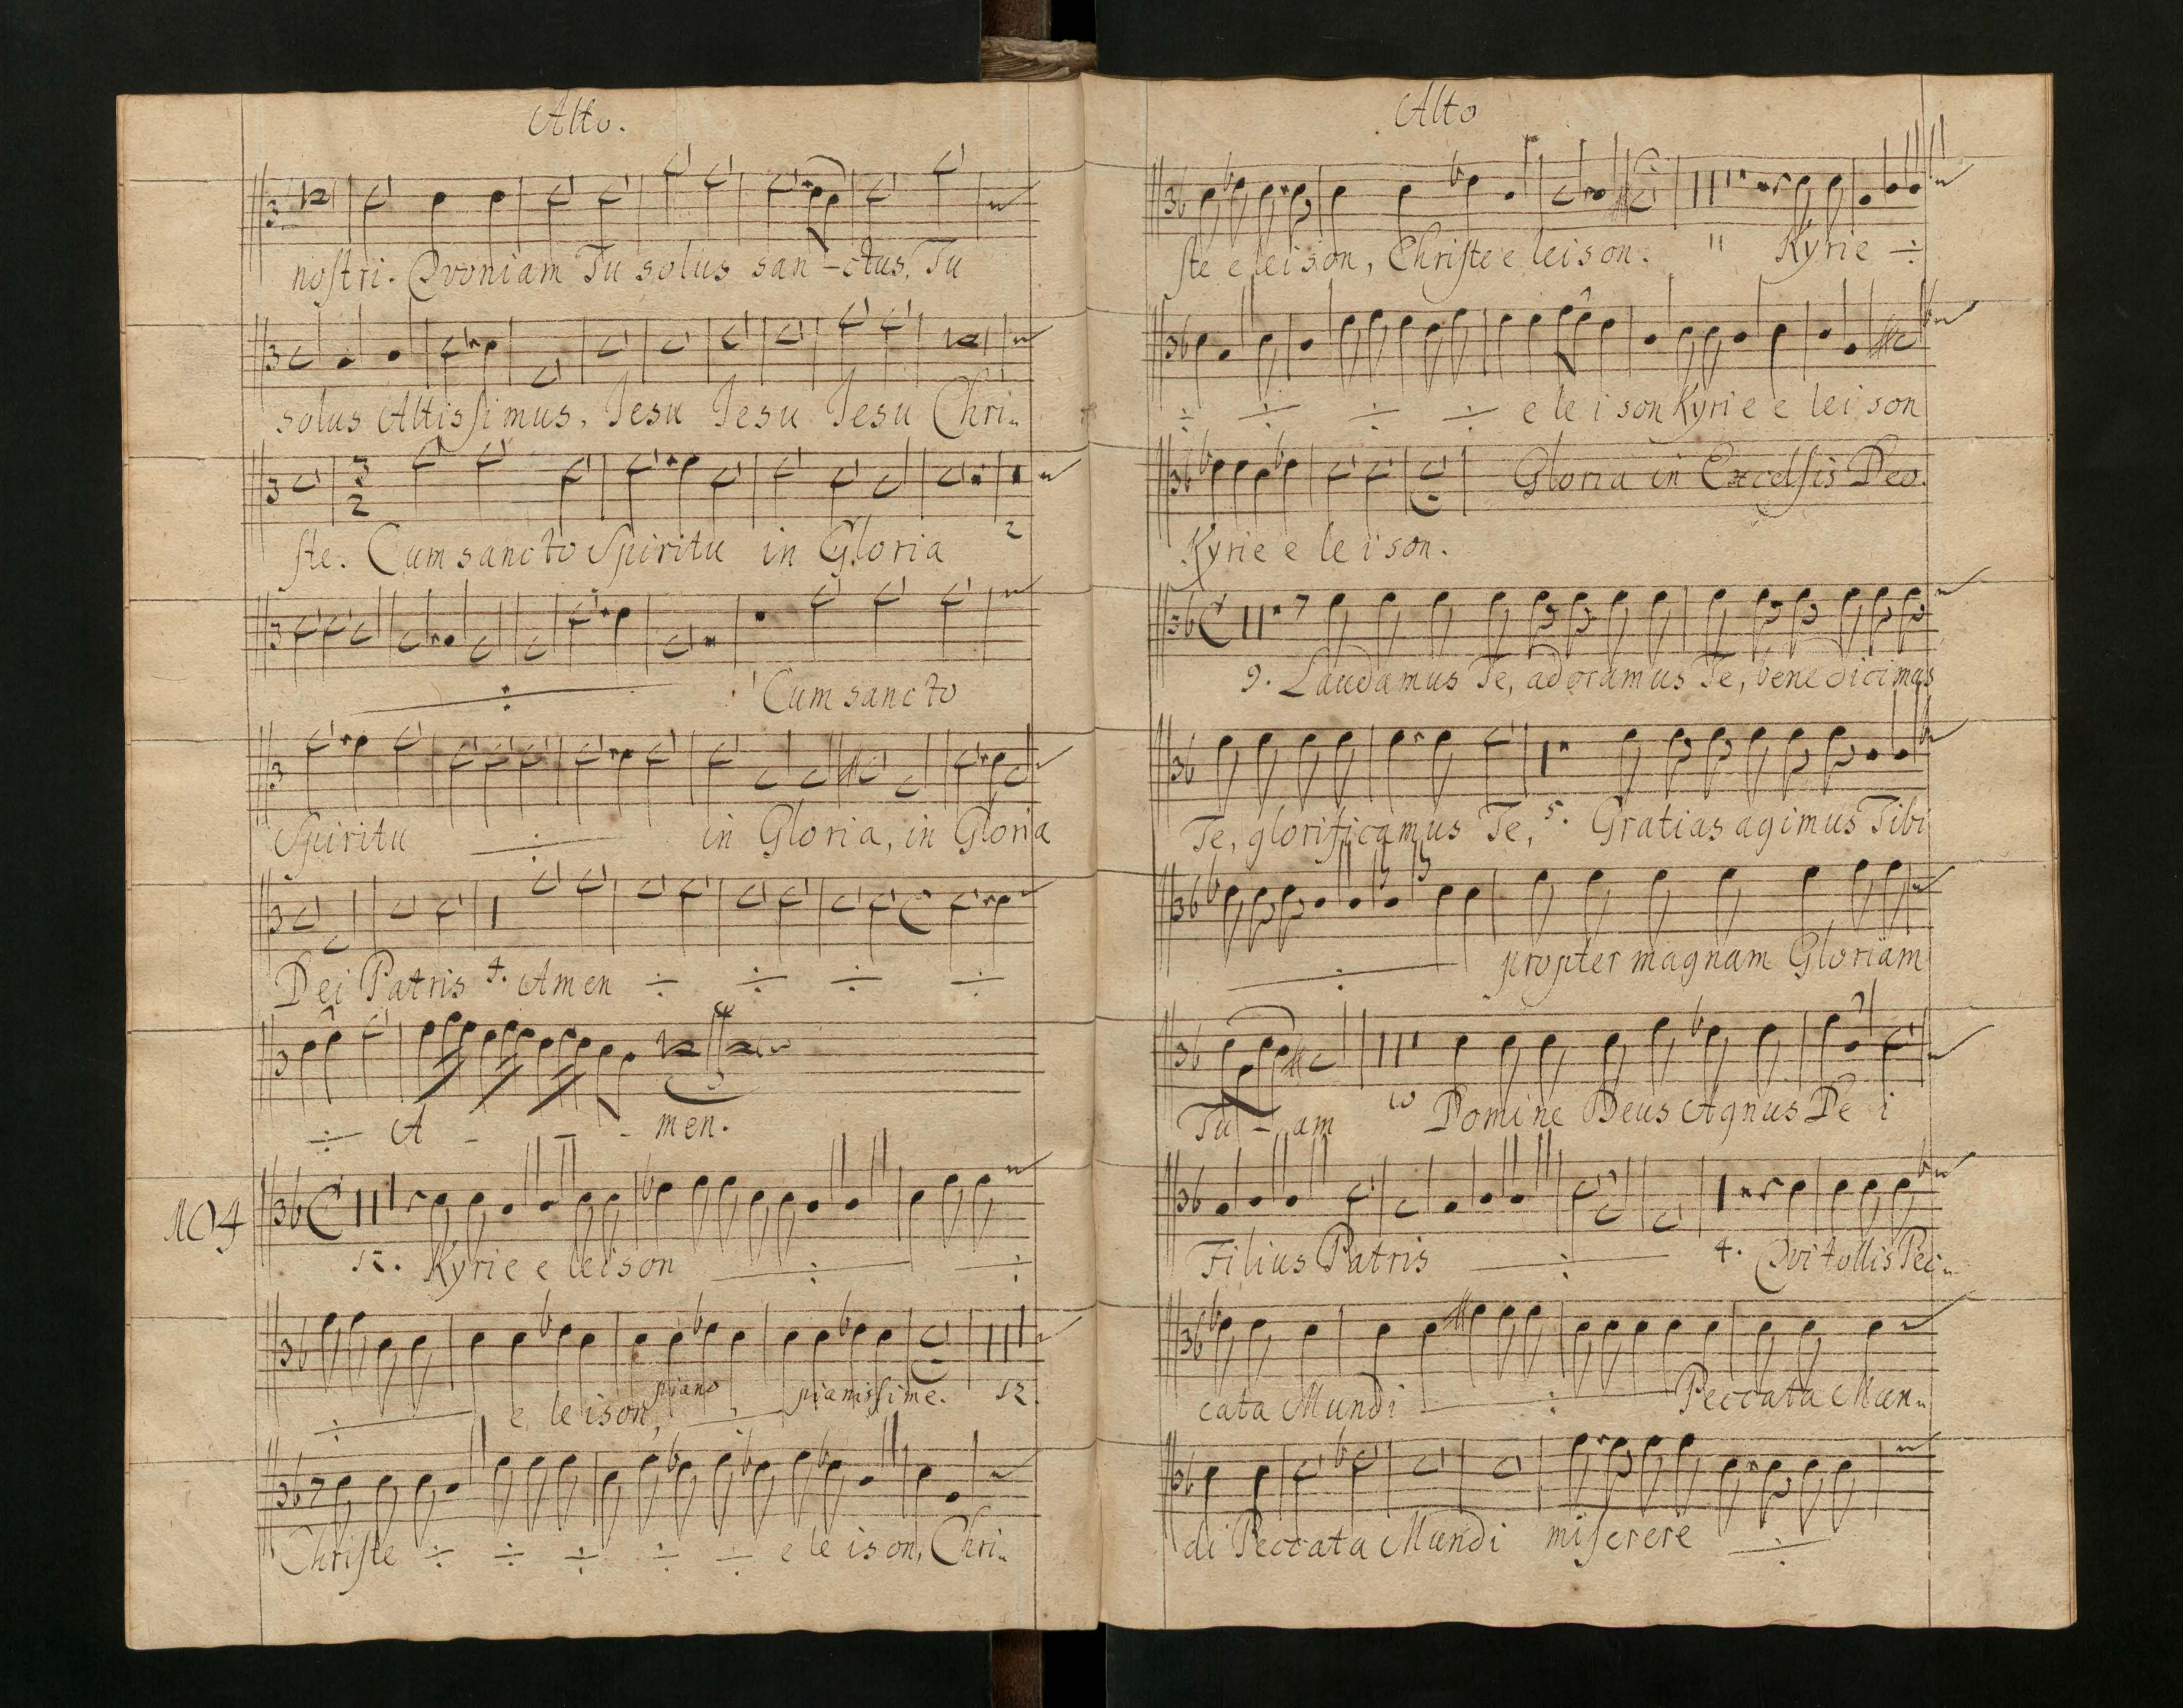 Alto.
nostri. Qvoniam Tu solus san-ctus, Tu
solus Altissimus, Jesu Jesu Jesu Chri-
3
2
ste. Cum sancto Spiritu in Gloria 2
÷ Cum sancto
Spiritu ÷ in Gloria, in Gloria
Dei Patris 4. Amen ÷ ÷ ÷ ÷
÷ A - - - men.
104
12. Kyrie eleison ÷ ÷
÷ e leison, piano ÷ pianissime. 12.
Christe ÷ ÷ ÷ ÷ ÷ e leison, Chri-
Alto
ste eleison, Christe e leison. 11 Kyrie ÷
÷ ÷ ÷ ÷ e le i son Kyrie e leison
Gloria in Excelsis Deo.
Kyrie e le i son.
9. Laudamus Te, adoramus Te, benedicimus
Te, glorificamus Te, 5. Gratias agimus Tibi
÷ propter magnam Gloriam
Tu - am 10 Domine Deus Agnus De i
Filius Patris ÷ 4. Qvi tollis Pec-
cata Mundi ÷ Peccata Mun-
di Peccata Mundi miserere ÷